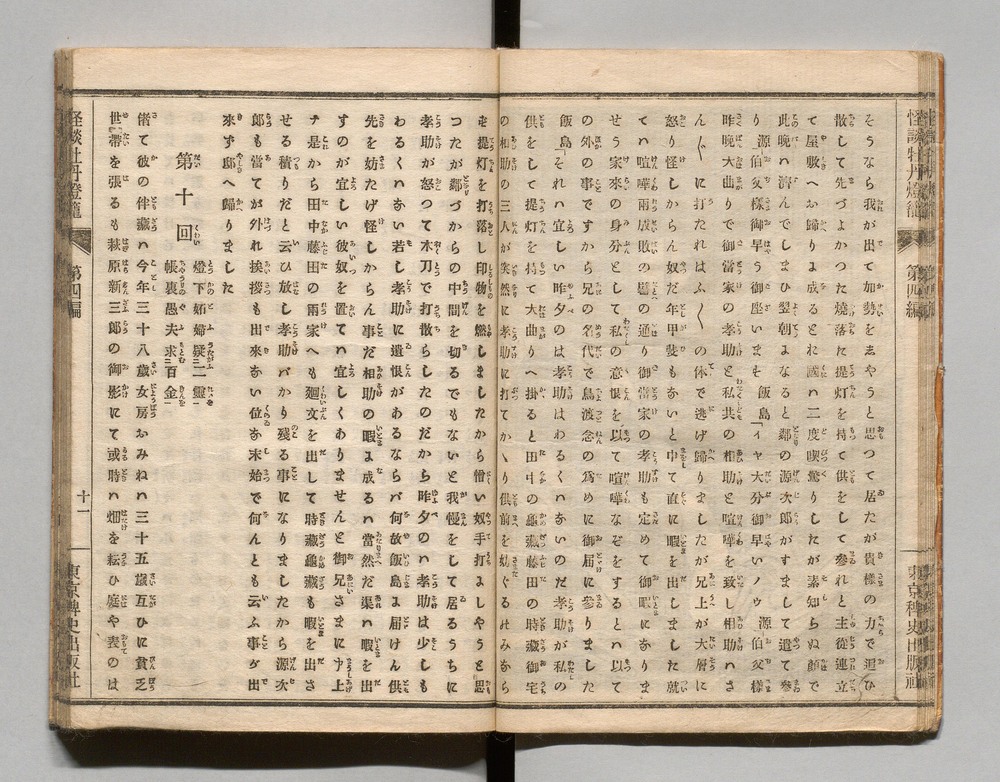 怪談牡丹燈籠
第四編
東京稗史出版社
そうなら我が出て加勢をゑやうと思つて居たが貴様の力で追ひ
散して先づよかつた燒落た提灯を持て供をして參れと主從連立
て屋敷へお歸りよ成るとれ國ハ二度喫驚りしたが素知らぬ顔で
此晩ハ濟んでしまひ翌朝よなると鄰の源次郎がすまして遣て參
り 源「伯父様御早う御座いまそ 飯島「イヤ大分御早いノウ 源「伯父様
昨晩大曲りで御當家の孝助と私共の相助と喧嘩を致し相助ハさ
ん〴〵に打たれはふ〳〵の体で逃げ歸りましたが兄上が大層に
怒り怪しからん奴だ年甲斐もあいと申て直に暇を出しました就
てハ喧嘩兩成敗の譬の通り御當家の孝助も定めて御暇にありま
せう家來の身分として私の意恨を以て喧嘩なぞをするとハ以て
の外の事ですから兄の名代で鳥渡念の爲めに御届に參りました
飯島「それハ宜しい昨夕のは孝助はわるくハあいのだ孝助が私の
供をして提灯を持て大曲りへ掛ると田中の龜藏藤田の時藏御宅
の相助の三人が突然に孝助に打てかゝり供前を妨ぐるのみあら
を提灯を打落し印物を燃しましたから憎い奴手打ょしやうと思
つたが鄰づからの中間を切るでもないと我慢をして居るうちに
孝助が怒つて木刀で打散らしたのだから昨夕のハ孝助は少しも
わるくハあい若し孝助に遺恨があるならバ何故飯島ょ届けん供
先を妨たげ怪しからん事だ相助の暇ょ成るハ當然だ渠ハ暇を出
すのが宜しい彼奴を置てハ宜しくありませんと御兄さまに申上
ナ是から田中藤田の兩家へも廻文を出して時藏龜藏も暇を出さ
せる積りだと云ひ放し孝助バかり殘る事になりましたから源次
郎も當てが外れ挨拶も出來あい位あ末始で何んとも云ふ事が出
來ず邸へ歸りました
第十回
燈下妬婦疑二靈一
帳裏愚夫求二百金一
偖て彼の伴藏ハ今年三十八歳女房おみねハ三十五歳互ひに貧乏
世帶を張るも萩原新三郎の御影にて或時ハ畑を耘ひ庭や表のは
怪談牡丹燈籠
第四編
十一
東京稗史出版社